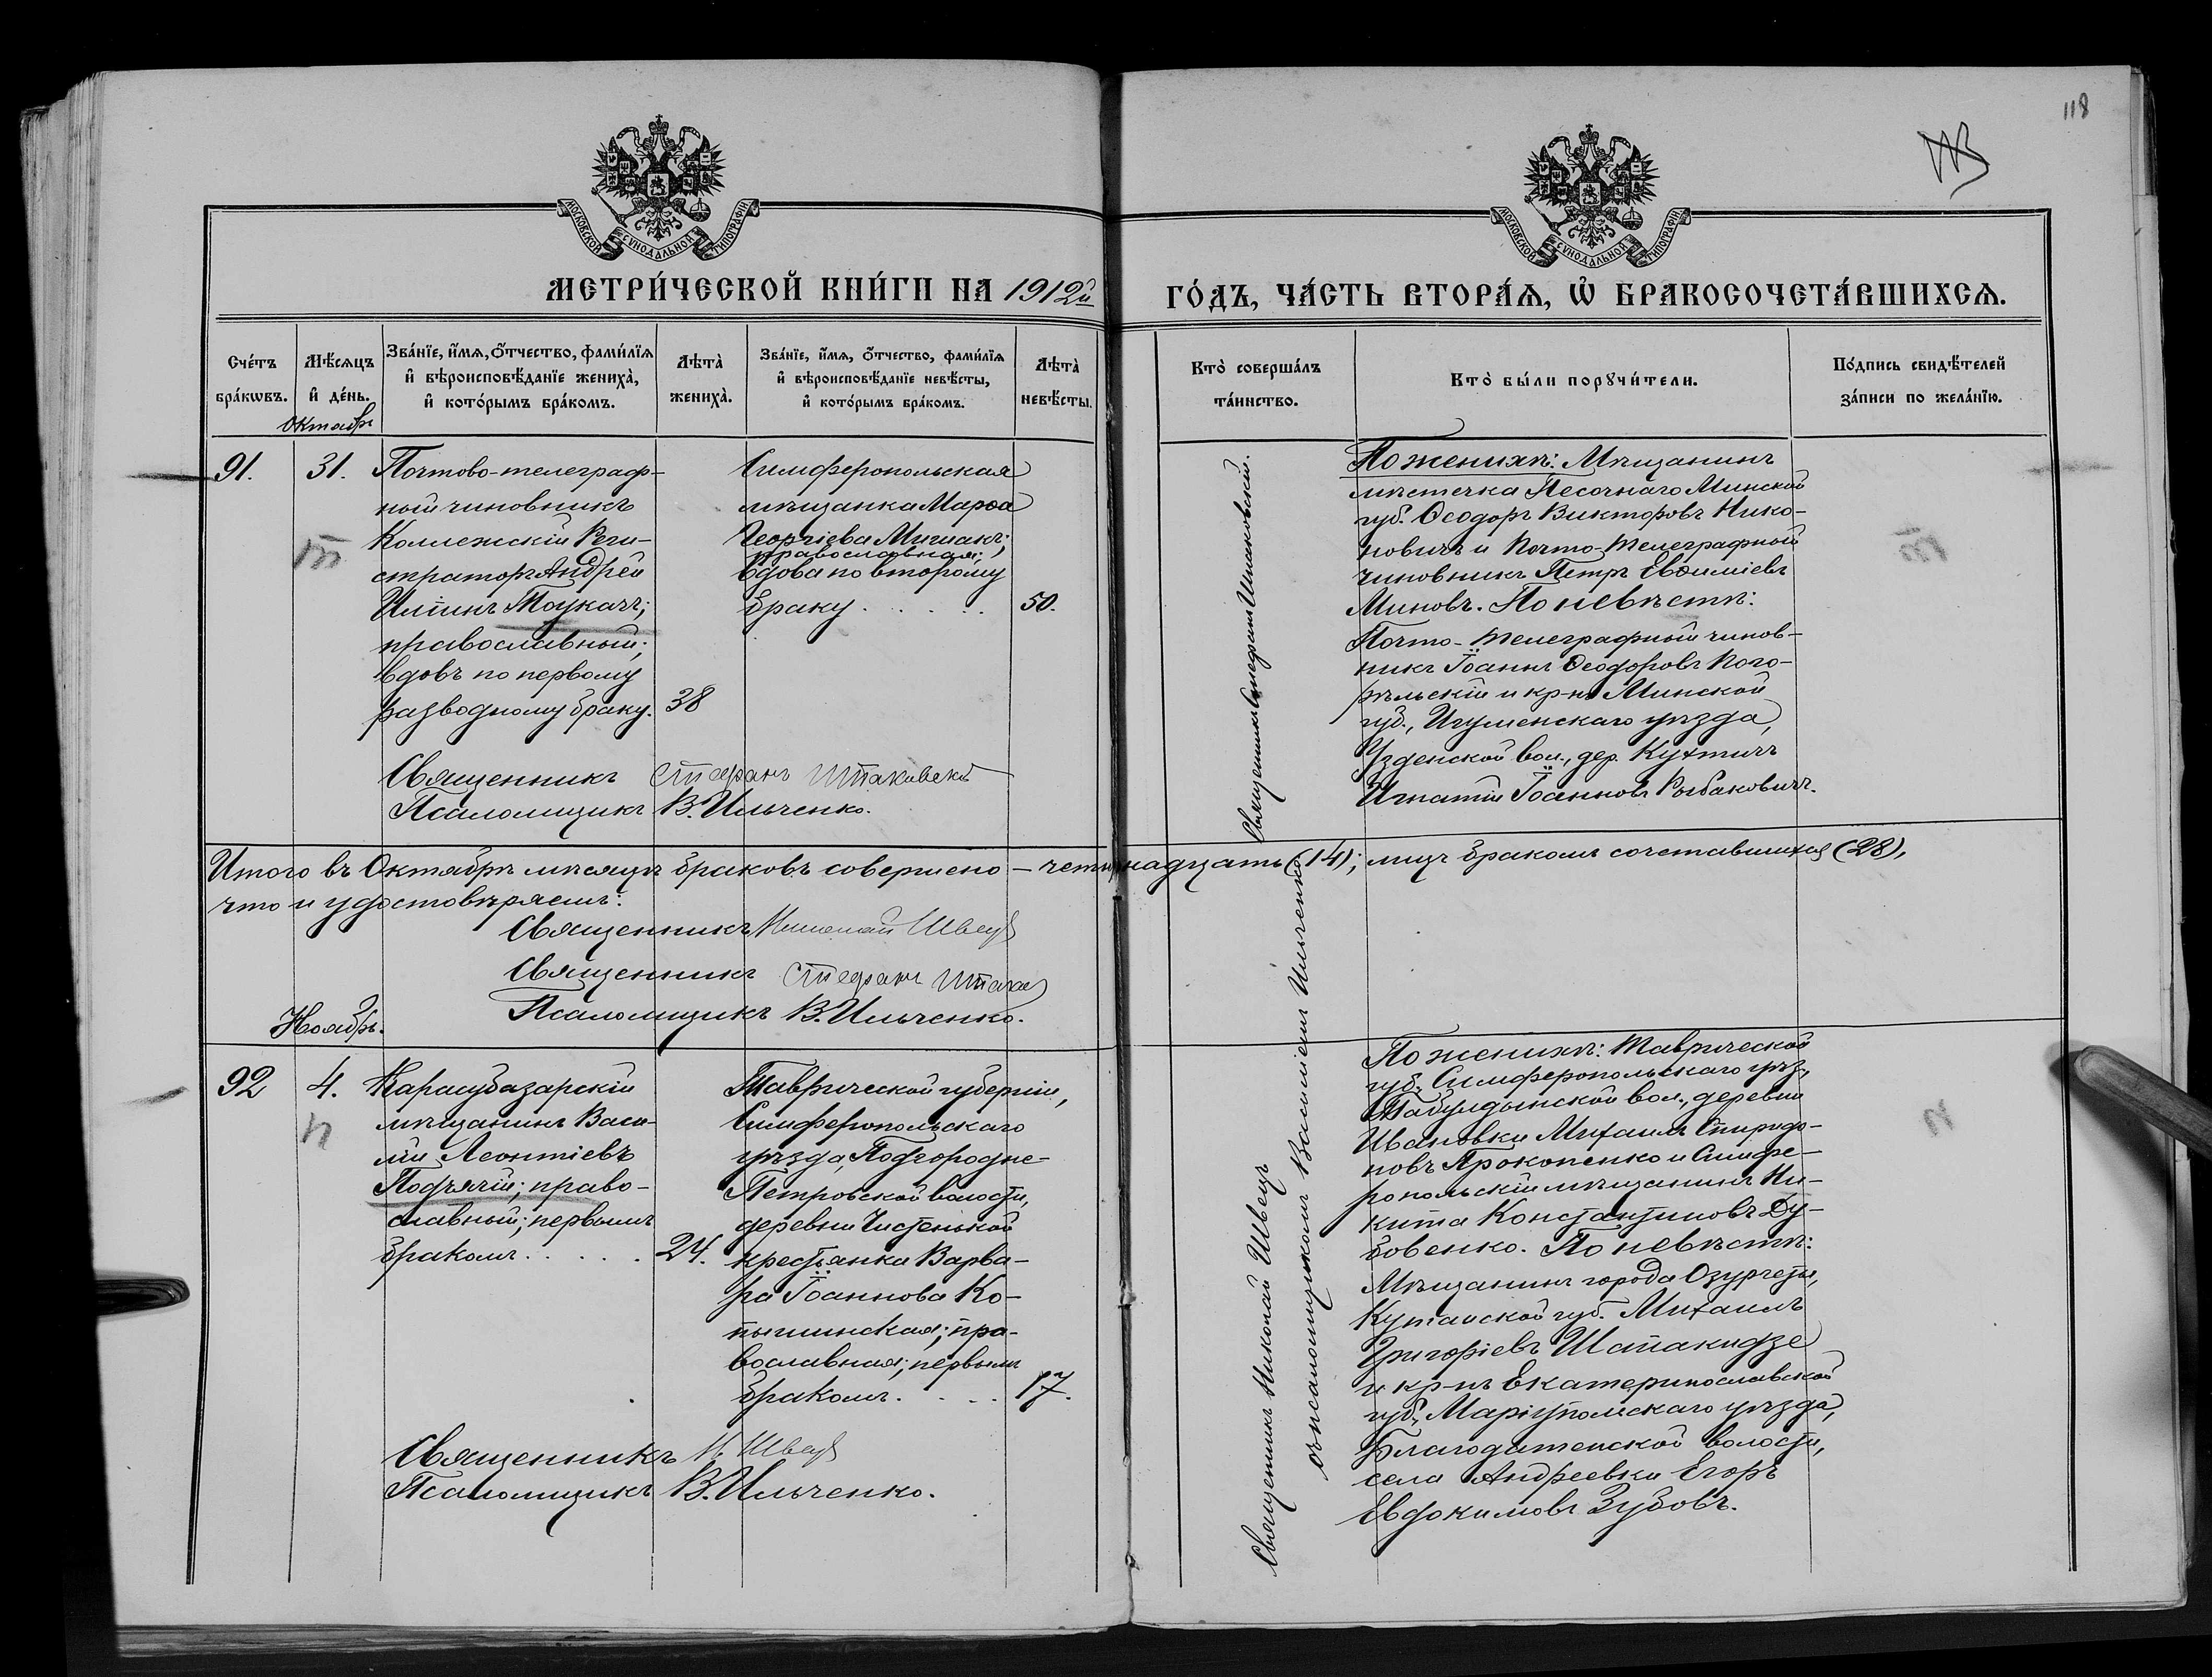 118
МОСКОВСКОЙ СѴНОДАЛЬНОЙ ТИПОГРАФІИ
МОСКОВСКОЙ СѴНОДАЛЬНОЙ ТИПОГРАФІИ
МЕТРИ́ЧЕСКОЙ КНИ́ГИ НА 1912й
ГО́ДЪ, ЧА́СТЬ ВТОРА́Ѧ, Ѡ҆ БРАКОСОЧЕТА́ВШИХСѦ.
Сче́тъ
бра́кѡвъ.
Мѣ́сѧцъ
и҆ де́нь.
Зва́нїе, и҆́мѧ, ѻ҆́тчество, фами́лїѧ
и҆ вѣроисповѣ́данїе жениха̀,
и҆ кото́рымъ бра́комъ.
Лѣта̀
жениха̀.
Зва́нїе, и҆́мѧ, ѻ҆́тчество, фами́лїѧ
и҆ вѣроисповѣ́данїе невѣ́сты,
и҆ кото́рымъ бра́комъ.
Лѣта̀
невѣ́сты.
Кто̀ соверша́лъ
та́инство.
Кто̀ бы́ли порꙋчи́тели.
По́дпись свидѣ́телей
за́писи по жела́нїю.
Октябрь
91.
31.
Почтово-телеграф-
ный чиновникъ
Коллежскій Реги-
страторъ Андрей
Иліинъ Тоукачъ;
православный;
вдовъ по первому
разводному браку.
38
Симферопольская
мѣщанка Марѳа
Георгіева Мишакъ;
православная;
вдова по второму
браку . . . . .
50.
Священникъ Стефанъ Штаковскій
Псаломщикъ В. Ильченко.
Священникъ Стефанъ Штаковскій.
По женихѣ: Мѣщанинъ
мѣстечка Песочнаго Минской
губ. Ѳеодоръ Викторовъ Нико-
новичъ и Почто-телеграфный
чиновникъ Петръ Евѳиміевъ
Миновъ. По невѣстѣ:
Почто-телеграфный чинов-
никъ Іоаннъ Ѳеодоровъ Пого-
рѣльскій и кр-нъ Минской
губ., Игуменскаго уѣзда,
Узденской вол., дер. Кухтичъ
Игнатій Іоанновъ
Итого въ Октябрѣ мѣсяцѣ браковъ совершено — четырнадцать (14); лицъ бракомъ сочетавшихся (28),
что и удостовѣряемъ:
Священникъ Николай Швецъ
Священникъ Стефанъ
Псаломщикъ В. Ильченко.
Ноябрь.
92
4.
Карасубазарскій
мѣщанинъ Васи-
лій Леонтіевъ
Подъячій; право-
славный; первымъ
бракомъ . . . . .
24.
Таврической губерніи,
Симферопольскаго
уѣзда, Подгородне-
Петровской волости,
деревни Чистенькой
крестьянка Варва-
ра Іоаннова Ко-
пышинская; пра-
вославная; первымъ
бракомъ . . . .
17.
Священникъ Н. Швецъ
Псаломщикъ В. Ильченко.
Священникъ Николай Швецъ
съ псаломщикомъ Василіемъ Ильченко
По женихѣ: Таврической
губ. Симферопольскаго уѣз.,
Табулдынской вол., деревни
Ивановки Михаилъ Спиридо-
новъ Прокопенко и Симфе-
ропольскій мѣщанинъ Ни-
кита Константиновъ Ду-
бовенко. По невѣстѣ:
Мѣщанинъ города Озургеты,
Кутаиской губ. Михаилъ
Григоріевъ Шапакидзе
и кр-нъ Екатеринославской
губ. Маріупольскаго уѣзда,
Благодатенской волости,
села Андреевки Егоръ
Евдокимовъ Зубовъ.